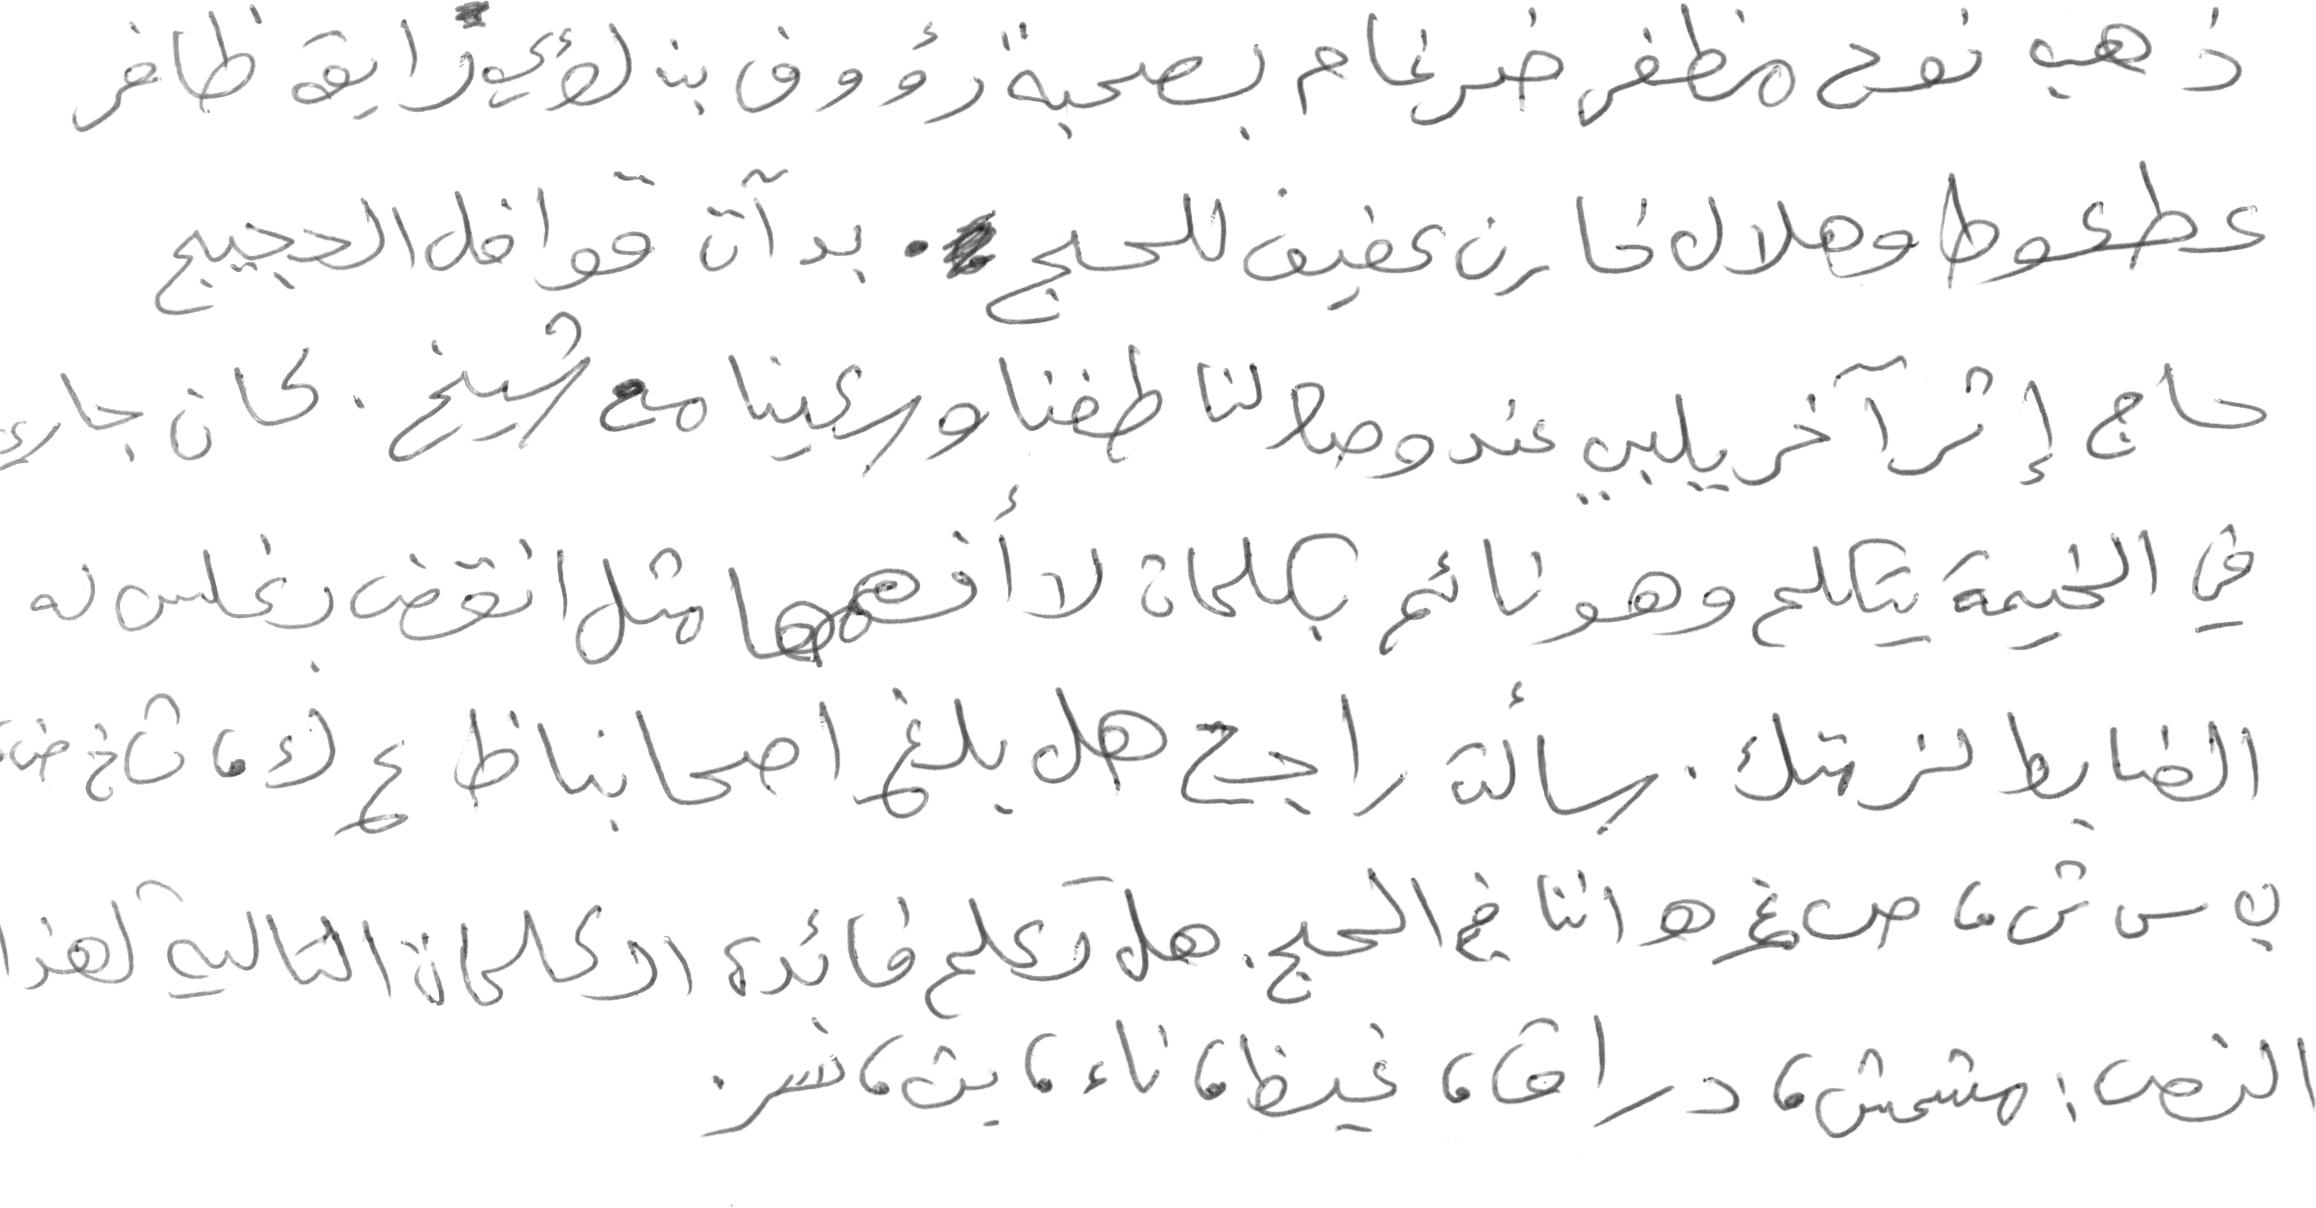 ذهب نوح مظفر ضرغام بصحبة رؤوف بن لؤي رايق ظافر
عطعوط وهلال خازن عفيف للحج . بدآت قوافل الحجيج
حاج إثر آخر يلبي عند وصلا لنا طفنا وسعينا مع شيخ . كان جاري
في الخيمة يتكلم وهو نائم بكلمات لا أفهمها مثل انقض بغلس له
الضابط لنزمتك . سألت راجح هل بلغ اصحابنا ظ ع ك ء ، ث خ ض ،
ى س ش ، ص غ ه اننا في الحج . هل تعلم فائدة الكلمات التالية لهذا
النص : مشمش ، دراق ، غيظ ، ناء ، بث ، نسر .